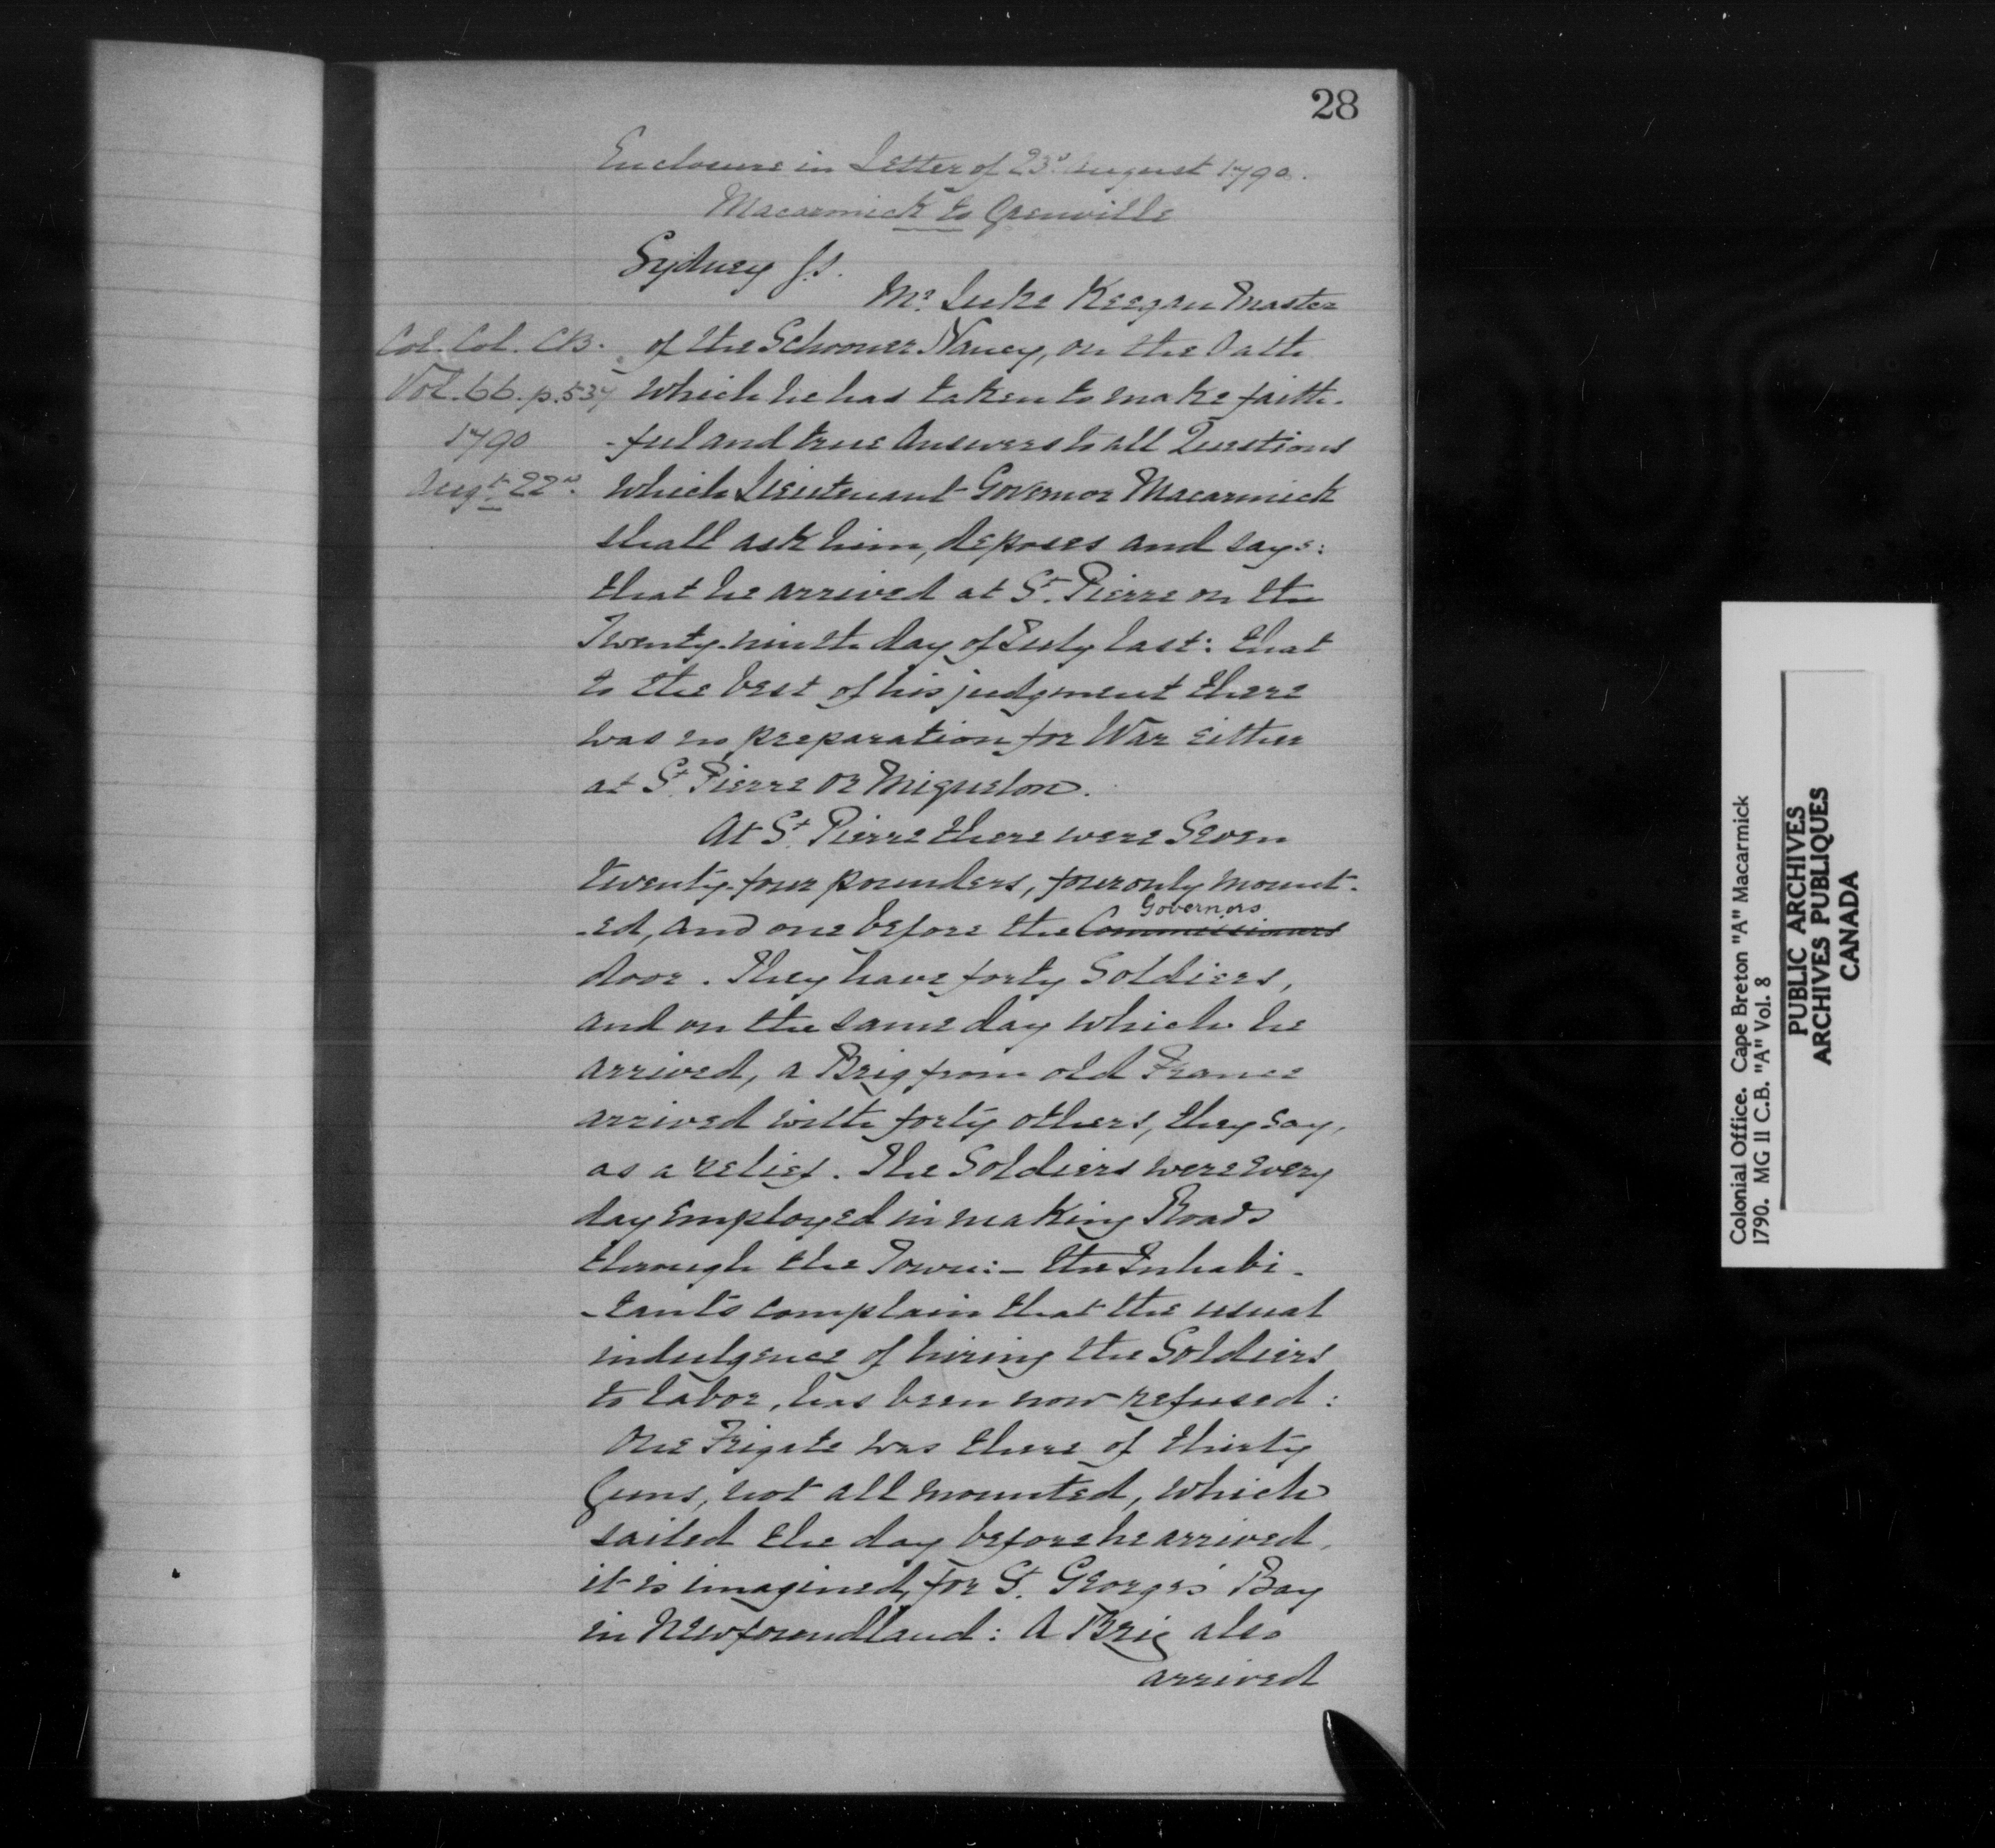 28
Enclosure in Letter of 23d August 1790.
Macarmick to Grenville
Sydney ss.
Mr. Luke Keegan Master
Col. Col. C.B. of the Schooner Nancy, on the Oath
Vol. 66. p. 537 which he has taken to make faith-
1790 -ful and true Answers to all Questions
Augt 22d. which Lieutenant-Governor Macarmick
shall ask him, deposes and says:
that he arrived at St. Pierre on the
Twenty-ninth day of July last: that
to the best of his judgment there
was no preparation for War either
at St. Pierre or Miguelon.
At St. Pierre there were Seven
twenty-four pounders, four only mount-
Governors
-ed, and one before the Commissioners
door. They have forty Soldiers,
and on the same day which he
arrived, a Brig from old France
arrived with forty others, they say,
as a relief. The Soldiers were every
day employed in making Roads
through the Town:- the Inhabi-
-tants complain that the usual
indulgence of hiring the Soldiers
to labor, has been now refused:
One Frigate was there of thirty
Guns, not all mounted, which
sailed the day before he arrived,
it is imagined, for St. George's Bay
in Newfoundland: A Brig also
arrived
Colonial Office. Cape Breton "A" Macarmick
1790. MG II C.B. "A" Vol. 8
PUBLIC ARCHIVES
ARCHIVES PUBLIQUES
CANADA